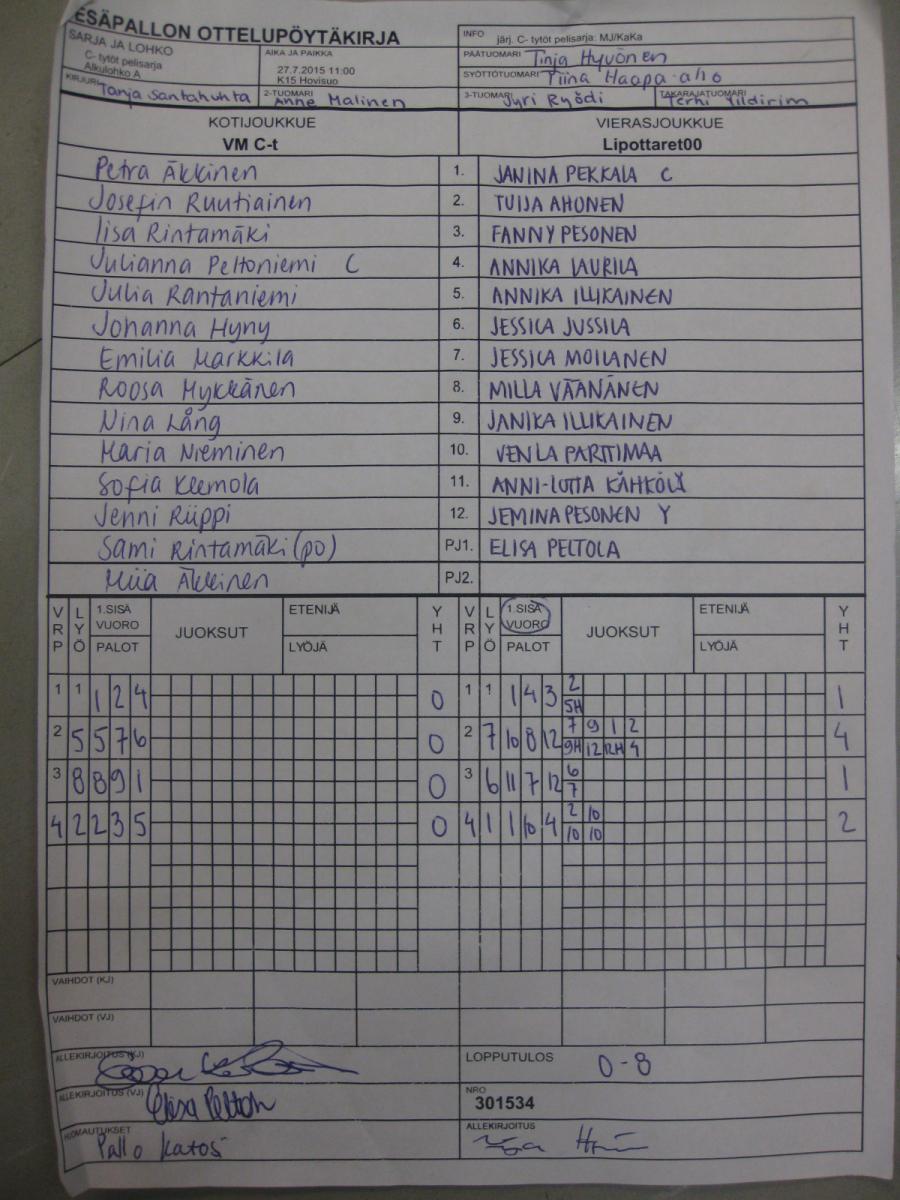 ESÄPALLON OTTELUPÖYTÄKIRJA
INFO järj. C- tytöt pelisarja: MJ/KaKa
SARJA JA LOHKO
C- tytöt pelisarja
Alkulohko A
AIKA JA PAIKKA
27.7.2015 11:00
K15 Hovisuo
PÄÄTUOMARI Tinja Hyvönen
SYÖTTÖTUOMARI Tiina Haapa-aho
KIRJURI Tanja Santahuhta
2-TUOMARI Anne Malinen
3-TUOMARI Jyri Ryödi
TAKARAJATUOMARI Terhi Yildirim
KOTIJOUKKUE VIERASJOUKKUE
VM C-t Lipottaret00
Petra Äkkinen 1. JANINA PEKKALA C
Josefin Ruutiainen 2. TUIJA AHONEN
Iisa Rintamäki 3. FANNY PESONEN
Julianna Peltoniemi C 4. ANNIKA LAURILA
Julia Rantaniemi 5. ANNIKA ILLIKAINEN
Johanna Hyny 6. JESSICA JUSSILA
Emilia Markkila 7. JESSICA MOILANEN
Roosa Mykkänen 8. MILLA VÄÄNÄNEN
Nina Lång 9. JANIKA ILLIKAINEN
Maria Nieminen 10. VENLA PARTTIMAA
Sofia Keemola 11. ANNI-LOTTA KÄHKÖLÄ
Jenni Riippi 12. JEMINA PESONEN Y
Sami Rintamäki (po) PJ1. ELISA PELTOLA
Miia Äkkinen PJ2.
VRP LYÖ 1.SISÄ VUORO PALOT JUOKSUT ETENIJÄ LYÖJÄ YHT VRP LYÖ 1.SISÄ VUORO PALOT JUOKSUT ETENIJÄ LYÖJÄ YHT
1 1 1 2 4 0 1 1 1 4 3 2 1
5H
2 5 5 7 6 0 2 7 10 8 12 7 9 1 2 4
9H 12 12H 4
3 8 8 9 1 0 3 6 11 7 12 6 1
7
4 2 2 3 5 0 4 1 1 10 4 2 10 2
10 10
VAIHDOT (KJ)
VAIHDOT (VJ)
ALLEKIRJOITUS (KJ)
LOPPUTULOS 0-8
ALLEKIRJOITUS (VJ) Elisa Peltola
NRO
301534
HUOMAUTUKSET
Pallo katosi
ALLEKIRJOITUS